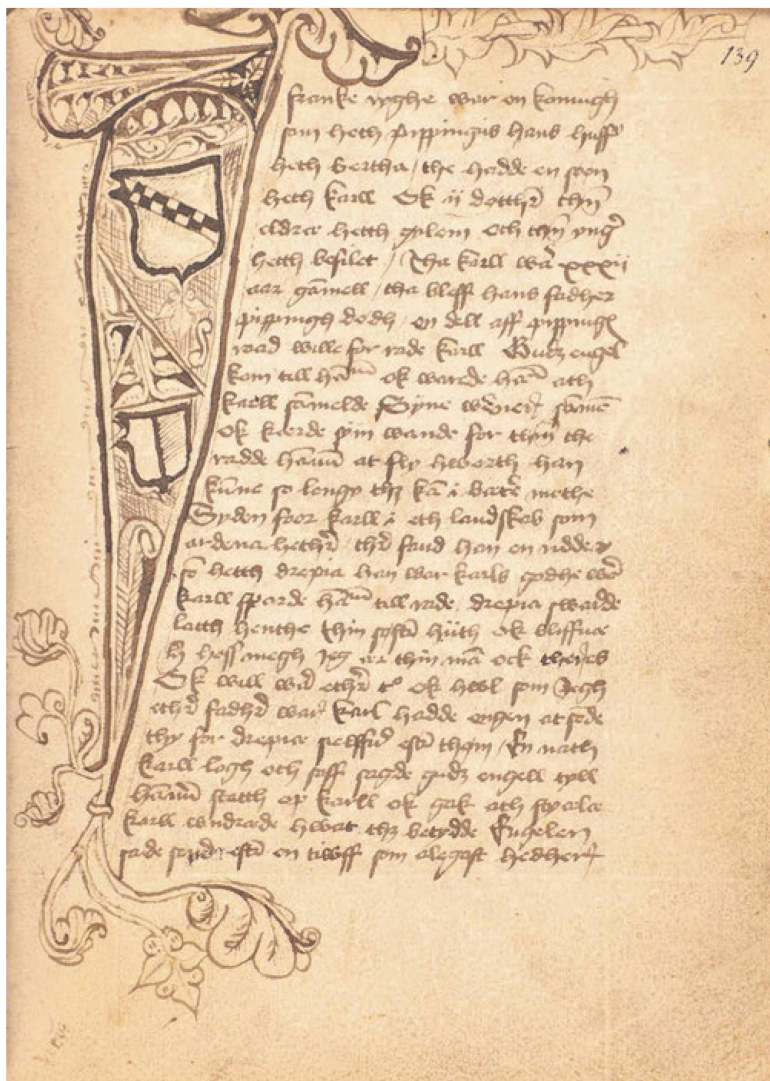 139
franke righe war en konungh
som heth pippingus hans husf
heth bertha / the hadde en søn
heth karll Ok ij dotthr thn̄
eldræ hetth gylem och thn̄ yngr
hetth besilet / Tha karll war xxxij
aar gāmell tha bleff hans fadher
pippingh dødh / en dell aff pippingx
raad wille for rade karll Gudz engel
kom till hānū ok warede hānū ath
karll sāmelde Syne wener sāmē
ok kærde syn wande for thm̄ the
radde hānū at fly hworth han
kūne so lenge thz kā i bætr mothe
Syden foor karll i eth landskab som
ardena hethr thr fand han en ridder
so hetth drepia han war karls godhe wē
karll sporde hānū till rade drepia swarde
latth henthe thin søstr hiith ok bliffue
h hoss megh Jeg ær thin mā ock theres
Ok will wær ethr to ok hwl som Jegh
ethr fadhr war karl hadde engen at sēde
thy for drepia sielffr eftr them / En nath
karll logh och soff sagde gudz engell tyll
hānū statth op karll ok gak ath styale
karll wndrede hwat thz betydde Engelen
sade eftr en tiwff som alegast hedher